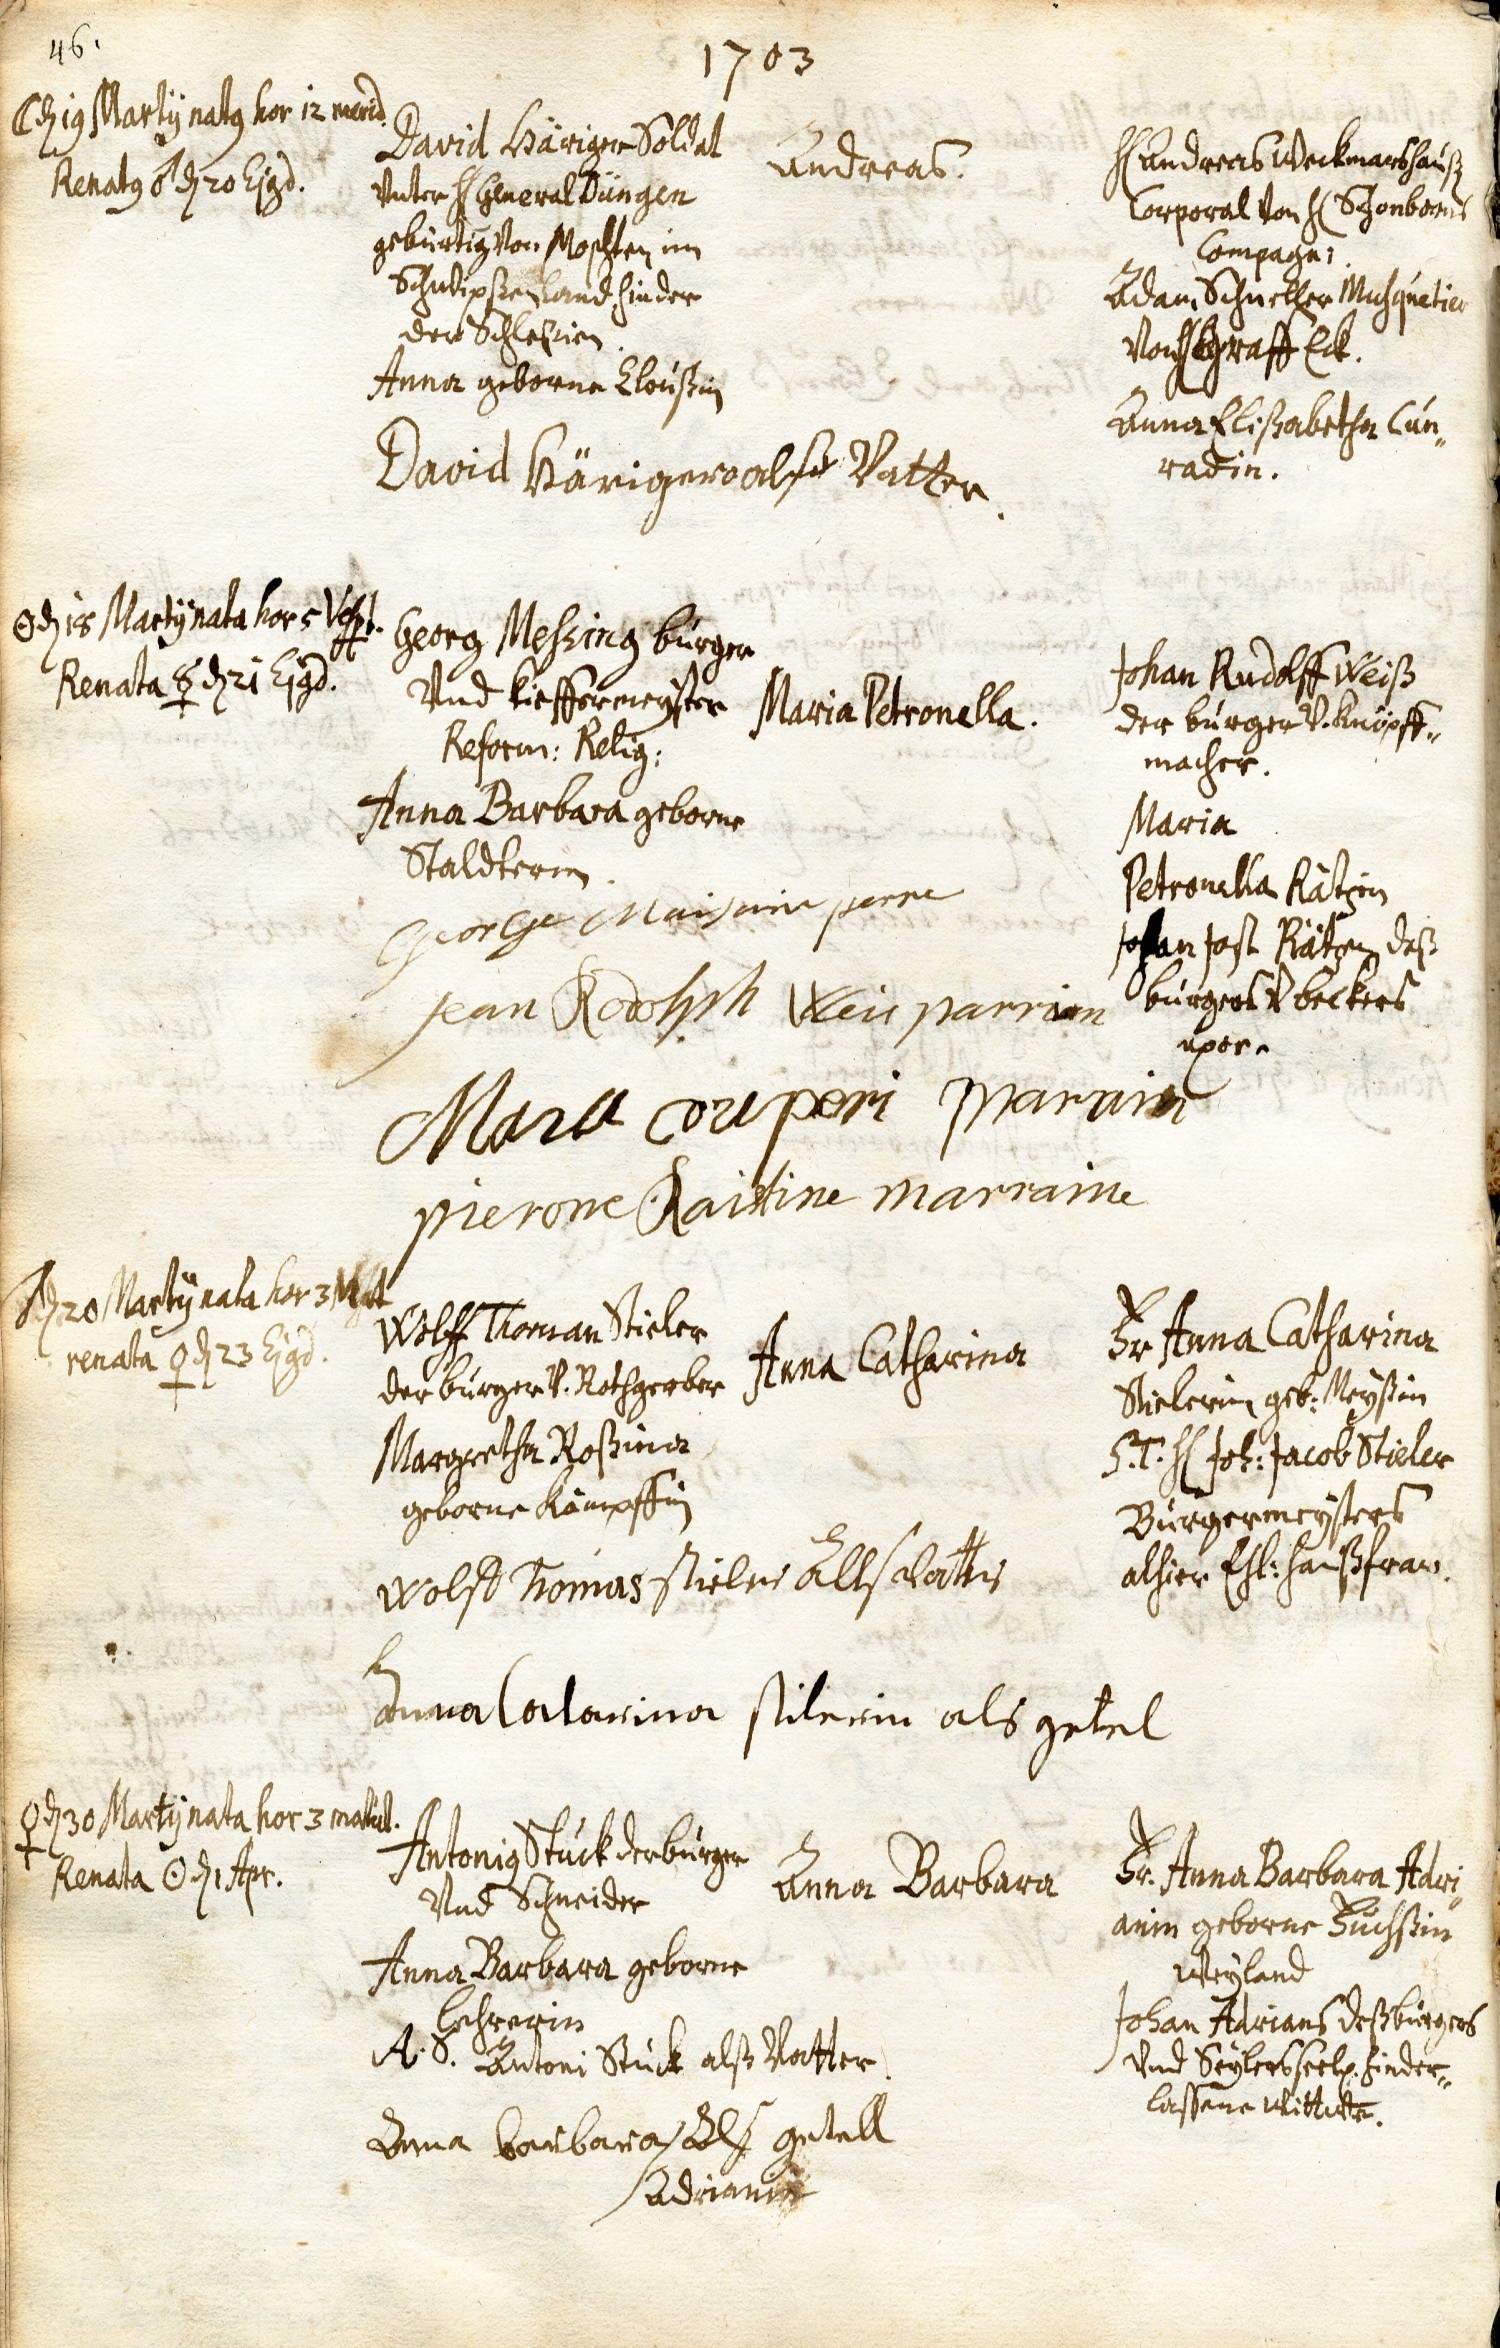 46.
1703
☾ d 19 Martij natg hor 12 merid.
Renatg ♂ d 20 Ejgd.
David Häriger Soldat
Unter H General Düngen
gebürtig von Moschten im
Land hinder
der Schlesien.
Anna geborne
David Häriger alß Vatter.
Andreas.
H Andreas Weckmarshauß
Corporal von H Schonborns
Compagn:
Adam Schneller Musquetier
Von H Graff Eck.
Anna Elisabetha Cun„
radin.
☉ d 18 Martij nata hor 5 Vesp̃t.
Renata ☿ d 21 Ejgd.
Georg Messing burger
Und kieffermeyster
Reform: Relig:
Anna Barbara geborne
Staldterin.
George perre
jean Rodolph Weis parrien
Mara couperi Marain
pierone Raittine marraine
Maria Petronella.
Johan Rudolff Weiß
der burger V. Knöpff„
macher.
Maria
Petronella Rätzin
Johan Jost Rätzen deß
burgers V beckers
uxor.
♂ d 20 Martij nata hor 3
renata ♀ d 23 Ejgd.
Wolff Thoman Stieler
der burger V. Rothgerber
Margretha Roßina
geborne Kämpffin
Wolff Thomas Stieler Alls Vatter
Anna Catarina stilerin als getel
Anna Catharina
Fr Anna Catharina
Stielerin geb: Meyßin
S.T. H Joh: Jacob Stieler
Burgermeysters
alhier Ehl: haußfraw.
♀ d 30 Martij nata hor 3 matut.
Renata ☉ d 1 Apr.
Antonig Stuck der burger
Und Schneider
Anna Barbara geborne
Lehrerin
A. S. Antoni Stuck alß Vatter.
Anna barbara Als getell
Adrianin
Anna Barbara
Fr. Anna Barbara Adri„
anin geborne Fuchßin
Weyland
Johan Adrians deß burgers
Und Seylers seel. hinder„
lassene Wittwe.